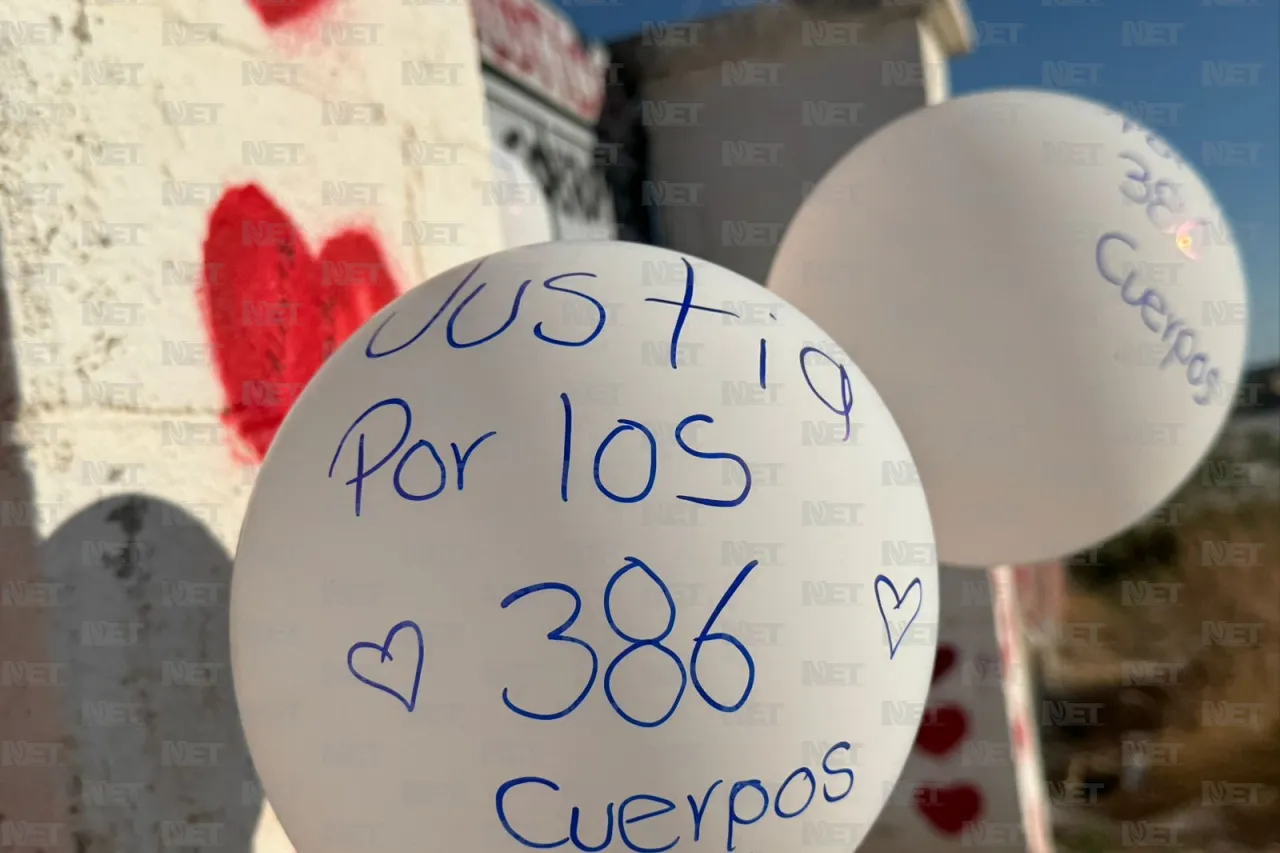 Justia
Por los
386
Cuerpos
386
Cuerpos
NET